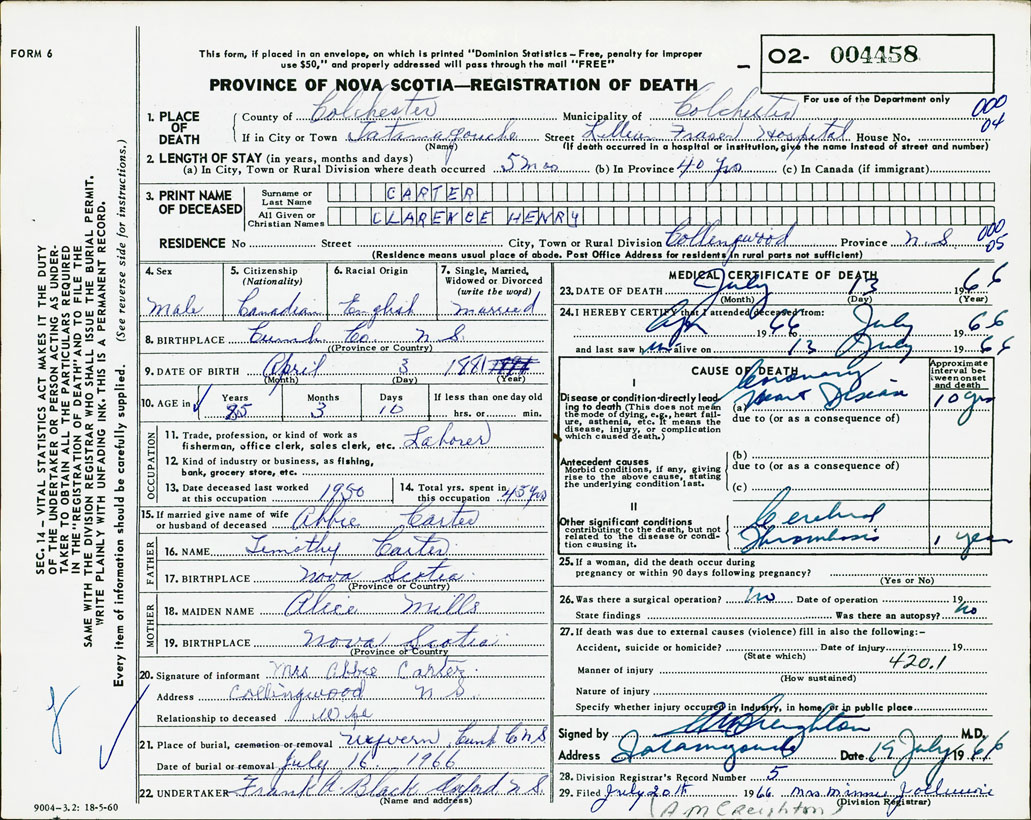 FORM 6
This form, if placed in an envelope, on which is printed "Dominion Statistics – Free, penalty for improper
use $50," and properly addressed will pass through the mail "FREE"
O2- 004458
PROVINCE OF NOVA SCOTIA—REGISTRATION OF DEATH
For use of the Department only
000
04
1. PLACE OF DEATH
County of Colchester Municipality of Colchester
If in City or Town Tatamagouche Street Lillian Fraser Hospital House No.
(Name) (If death occurred in a hospital or institution, give the name instead of street and number)
2. LENGTH OF STAY (in years, months and days)
(a) In City, Town or Rural Division where death occurred 5 mos (b) In Province 40 yrs (c) In Canada (if immigrant)
3. PRINT NAME OF DECEASED
Surname or Last Name CARTER
All Given or Christian Names CLARENCE HENRY
000
05
RESIDENCE No Street City, Town or Rural Division Collingwood Province N.S
(Residence means usual place of abode. Post Office Address for residents in rural parts not sufficient)
4. Sex
Male
5. Citizenship
(Nationality)
Canadian
6. Racial Origin
English
7. Single, Married,
Widowed or Divorced
(write the word)
married
8. BIRTHPLACE Cumb. Co. N.S.
(Province or Country)
9. DATE OF BIRTH April 3 1881
(Month) (Day) (Year)
10. AGE in Years 85 Months 3 Days 10 If less than one day old
hrs. or min.
OCCUPATION
11. Trade, profession, or kind of work as
fisherman, office clerk, sales clerk, etc. Laborer
12. Kind of industry or business, as fishing,
bank, grocery store, etc.
13. Date deceased last worked
at this occupation 1950
14. Total yrs. spent in
this occupation 45 yrs
15. If married give name of wife
or husband of deceased Abbie Carter
FATHER
16. NAME Timothy Carter
17. BIRTHPLACE Nova Scotia
(Province or Country)
MOTHER
18. MAIDEN NAME Alice Mills
19. BIRTHPLACE Nova Scotia
(Province or Country)
20. Signature of informant Mrs Abbie Carter
Address Collingwood N S
Relationship to deceased Wife
21. Place of burial, cremation or removal Wyvern, Cumb C N S
Date of burial or removal July 16 1966
22. UNDERTAKER Frank A Black Oxford N S.
(Name and address)
MEDICAL CERTIFICATE OF DEATH
23. DATE OF DEATH July 13 1966
(Month) (Day) (Year)
24. I HEREBY CERTIFY that I attended deceased from:
Apr 1966 July 1966
and last saw him alive on 13 July 1966
CAUSE OF DEATH
Approximate interval between onset and death
I
Disease or condition directly leading to death (This does not mean the mode of dying, e.g., heart failure, asthenia, etc. It means the disease, injury, or complication which caused death.)
(a) Coronary Heart Disease 10 yrs
due to (or as a consequence of)
Antecedent causes
Morbid conditions, if any, giving rise to the above cause, stating the underlying condition last.
(b)
due to (or as a consequence of)
(c)
II
Other significant conditions
contributing to the death, but not related to the disease or condition causing it.
Cerebral
Thrombosis 1 year
25. If a woman, did the death occur during
pregnancy or within 90 days following pregnancy?
(Yes or No)
26. Was there a surgical operation? no Date of operation 19
State findings Was there an autopsy? no
27. If death was due to external causes (violence) fill in also the following:–
Accident, suicide or homicide? Date of injury 19
(State which)
Manner of injury 420.1
(How sustained)
Nature of injury
Specify whether injury occurred in industry, in home, or in public place
Signed by A M Creighton M.D.
Address Tatamagouche Date 19 July 1966
28. Division Registrar's Record Number 5
29. Filed July 20th 1966 Mrs Minnie
(Division Registrar)
(A M CREIGHTON)
SEC. 14 – VITAL STATISTICS ACT MAKES IT THE DUTY
OF THE UNDERTAKER OR PERSON ACTING AS UNDER-
TAKER TO OBTAIN ALL THE PARTICULARS REQUIRED
IN THE "REGISTRATION OF DEATH" AND TO FILE THE
SAME WITH THE DIVISION REGISTRAR WHO SHALL ISSUE THE BURIAL PERMIT.
WRITE PLAINLY WITH UNFADING INK. THIS IS A PERMANENT RECORD.
Every item of information should be carefully supplied. (See reverse side for instructions.)
9004–3.2: 18-5-60